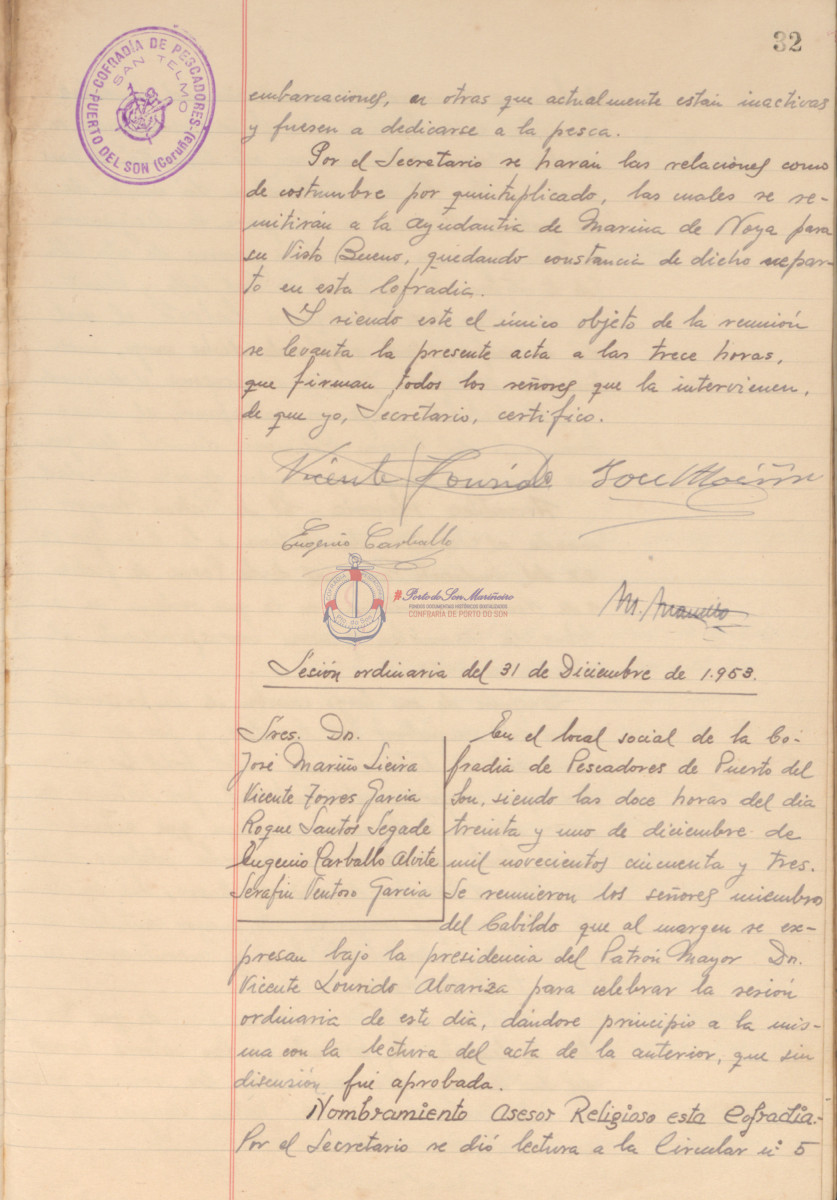 32
COFRADÍA DE PESCADORES
SAN TELMO
PUERTO DEL SON (Coruña)
embarcaciones, en otras que actualmente están inactivas
y fuesen a dedicarse a la pesca.
Por el Secretario se harán las relaciones como
de costumbre por quintuplicado, las cuales se re-
mitirán a la Ayudantia de Marina de Noya para
su Visto Bueno, quedando constancia de dicho repar-
to en esta Cofradia.
Y siendo este el único objeto de la reunión
se levanta la presente acta a las trece horas,
que firman todos los señores que la intervienen,
de que yo, Secretario, certifico.
Vicente Lourido Jose Mariño
Eugenio Carballo
#PortodoSonMariñeiro
FONDOS DOCUMENTAIS HISTÓRICOS DIXITALIZADOS
CONFRARÍA DE PORTO DO SON
M.
Sesión ordinaria del 31 de Diciembre de 1.953.
Sres. Dn.
José Mariño Sieira
Vicente Torres Garcia
Roque Santos Segade
Eugenio Carballo Alvite
Serafin Ventoso Garcia
En el local social de la Co-
fradia de Pescadores de Puerto del
Son, siendo las doce horas del dia
treinta y uno de diciembre de
mil novecientos cincuenta y tres.
Se reunieron los señores miembros
del Cabildo que al margen se ex-
presan bajo la presidencia del Patrón Mayor Dn.
Vicente Lourido Alvariza para celebrar la sesión
ordinaria de este dia, dándose principio a la mis-
ma con la lectura del acta de la anterior, que sin
discusión fué aprobada.
Nombramiento Asesor Religioso esta Cofradia.-
Por el Secretario se dió lectura a la Circular nº 5